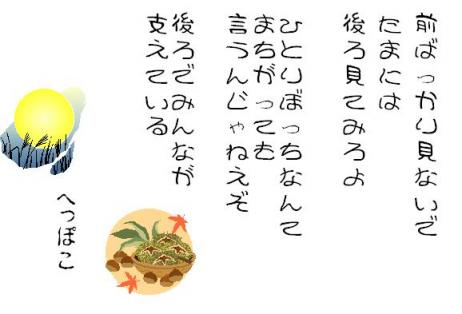 前ばっかり見ないで
たまには
後ろ見てみろよ
ひとりぼっちなんて
まちがっても
言うんじゃねえぞ
後ろでみんなが
支えている
へっぽこ